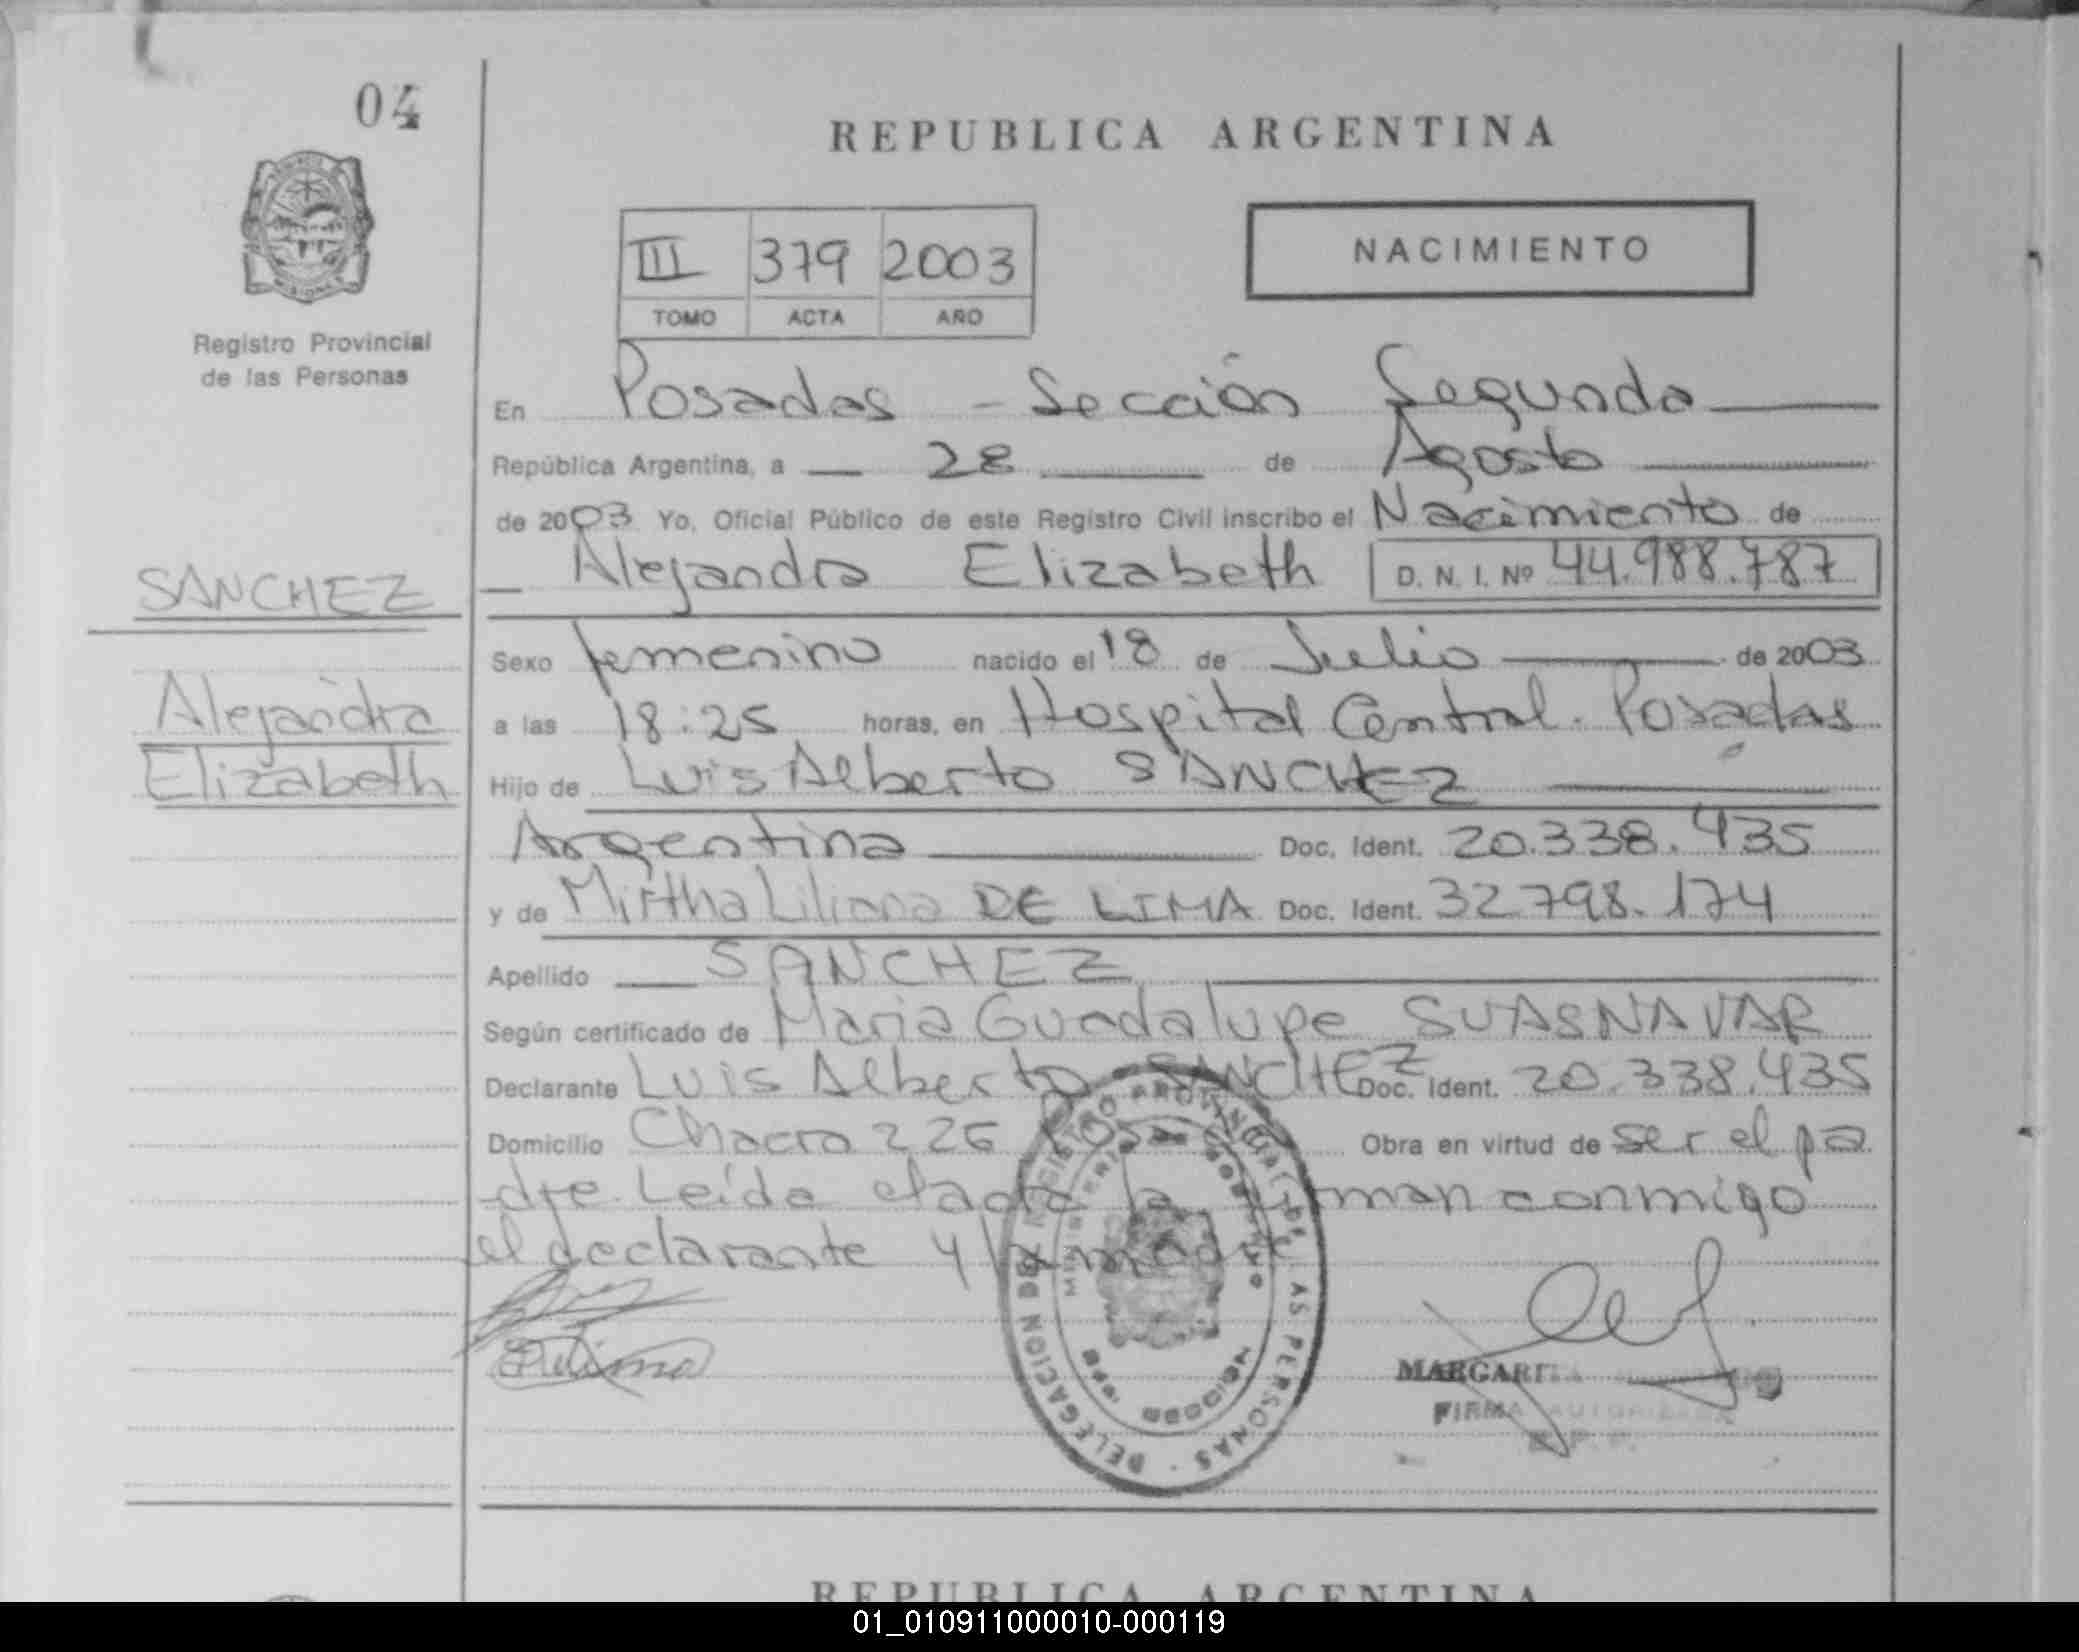 04
REPUBLICA ARGENTINA
III 379 2003
TOMO ACTA AÑO
NACIMIENTO
Registro Provincial
de las Personas
En Posadas - Sección Segunda
República Argentina, a 28 de Agosto
de 2003 Yo, Oficial Público de este Registro Civil inscribo el Nacimiento de
Alejandra Elizabeth D. N. I. Nº 44.988.787
SANCHEZ
Alejandra
Elizabeth
Sexo femenino nacido el 18 de Julio de 2003
a las 18:25 horas, en Hospital Central. Posadas
Hijo de Luis Alberto SANCHEZ
Argentina Doc. Ident. 20.338.435
y de Mirtha Liliana DE LIMA Doc. Ident. 32.798.174
Apellido SANCHEZ
Según certificado de Maria Guadalupe SUASNAVAR
Declarante Luis Alberto SANCHEZ Doc. Ident. 20.338.435
Domicilio Chacra 226 Obra en virtud de ser el pa
dre. Leída el acta la firman conmigo
el declarante y la madre
REGISTRO PROVINCIAL DE LAS PERSONAS - DELEGACION
MINISTERIO DE GOBIERNO
MISIONES
MARGARITA
FIRMA AUTORIZADA
REPUBLICA ARGENTINA
01_010911000010-000119